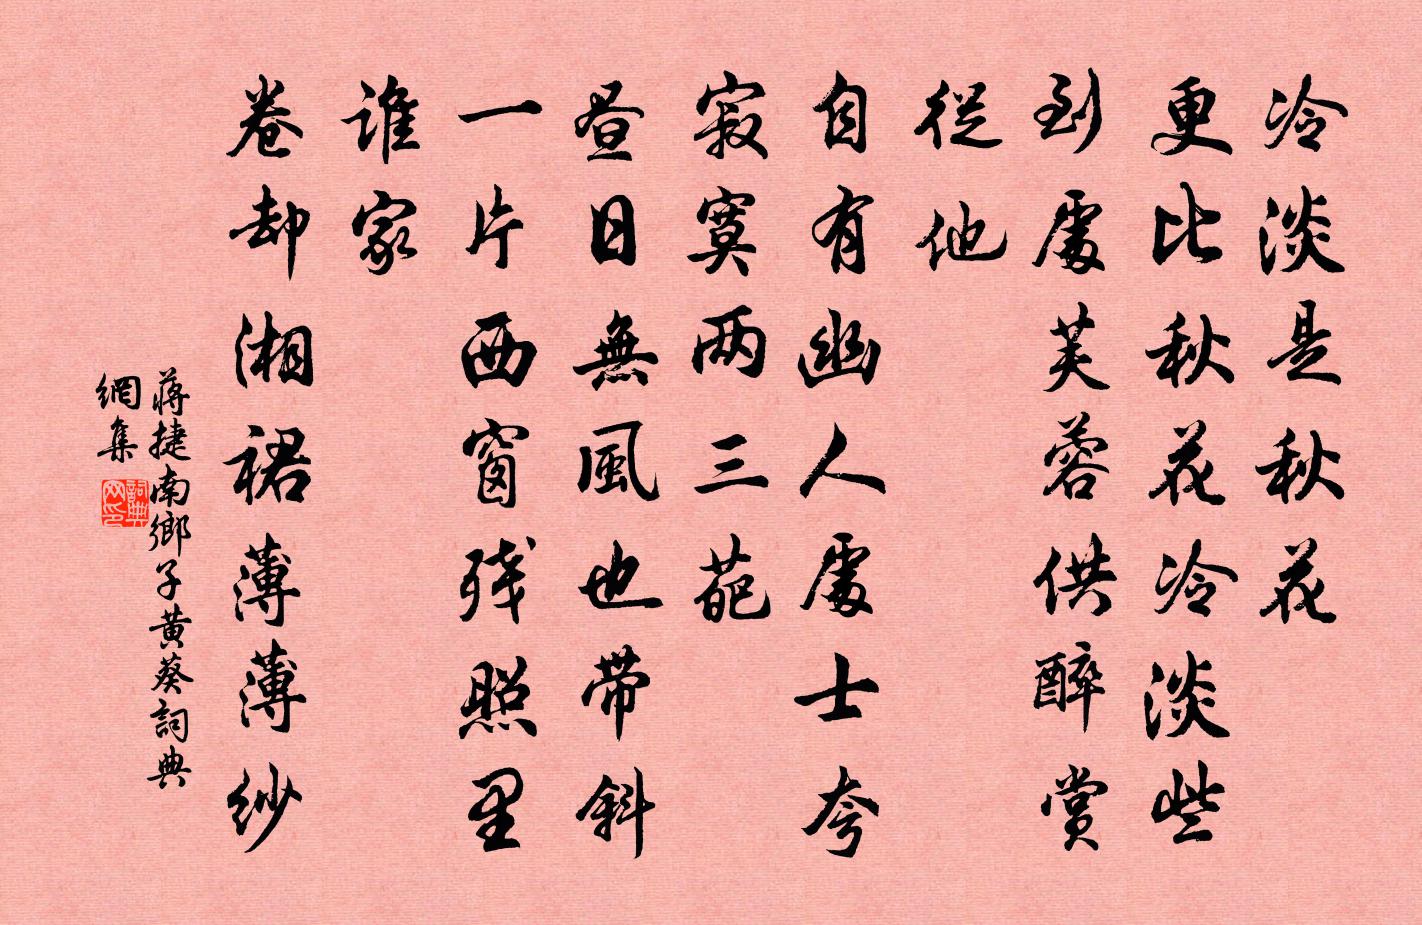 冷淡是秋花
更比秋花冷淡些
到處芙蓉供醉賞
從他
自有幽人處士夸
寂寞两三葩
昼日無風也带斜
一片西窗残照里
誰家
卷却湘裙薄薄紗
蔣捷南鄉子黃葵詞典
網集
詞典
网印